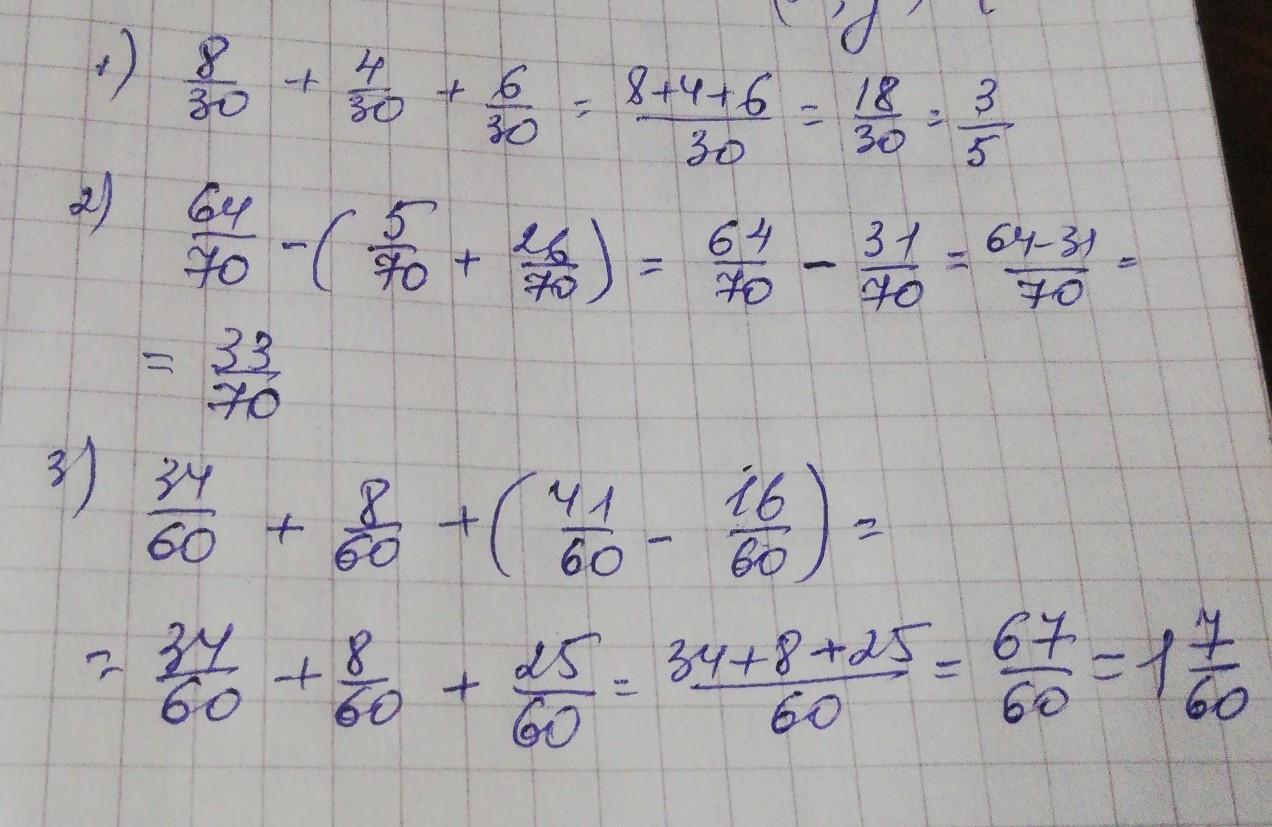 1) 8/30 + 4/30 + 6/30 = 8+4+6/30 = 18/30 = 3/5
2) 64/70 - (5/70 + 26/70) = 64/70 - 31/70 = 64-31/70 =
= 33/70
3) 34/60 + 8/60 + (41/60 - 16/60) =
= 34/60 + 8/60 + 25/60 = 34+8+25/60 = 67/60 = 1 7/60